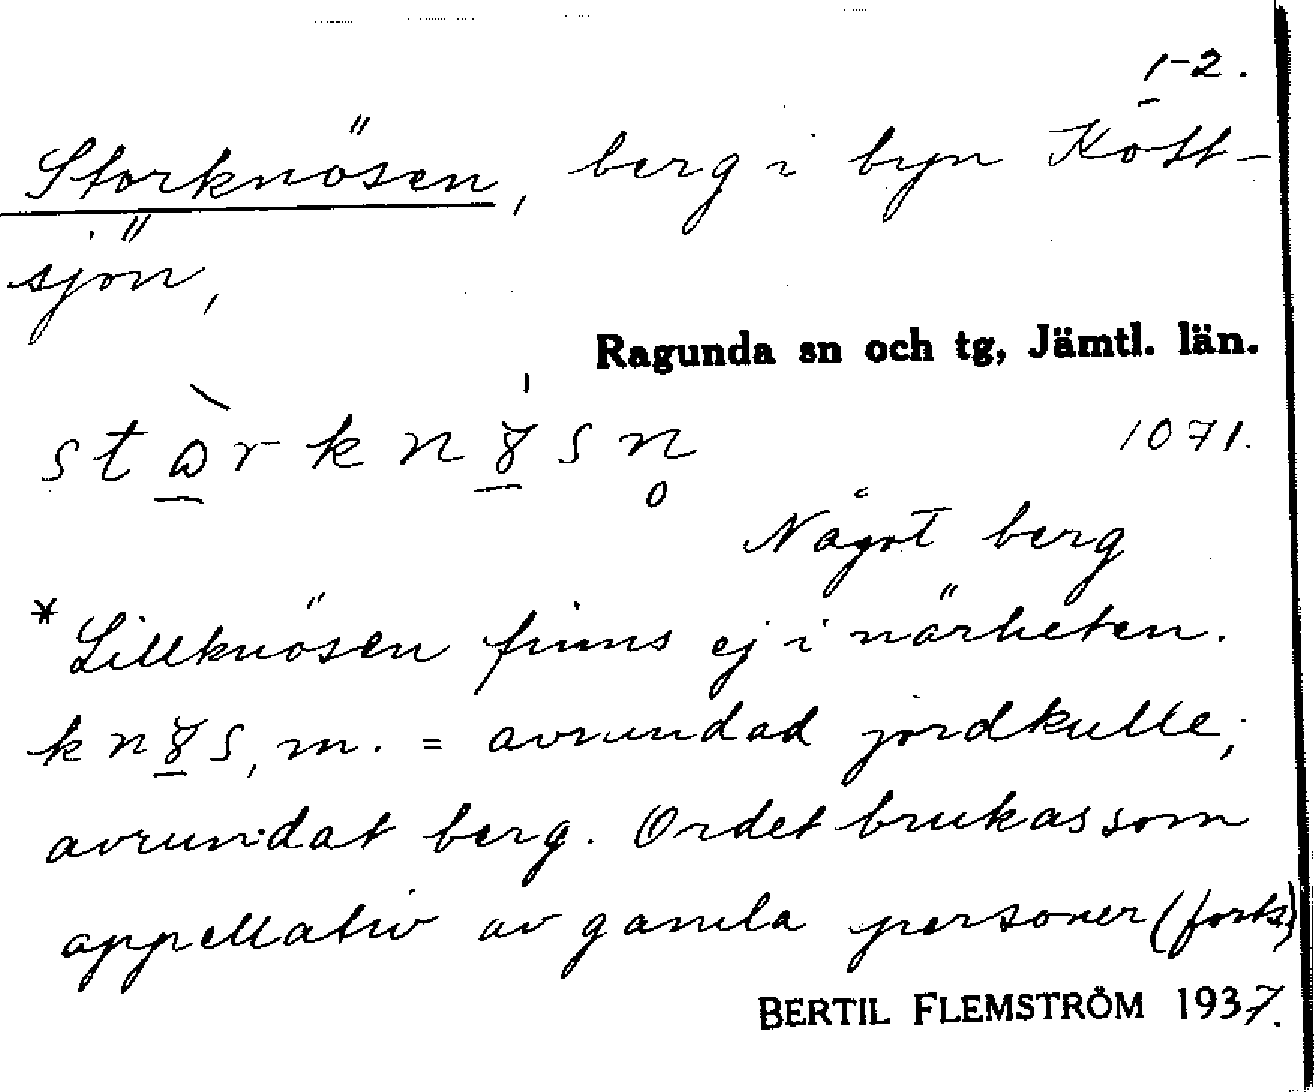 1-2.
Storknösen, berg i byn Kött-
sjön,
Ragunda sn och tg, Jämtl. län.
1071.
Något berg
*Lillknösen finns ej i närheten.
m. = avrundad jordkulle,
avrundat berg. Ordet brukas som
appellativ av gamla personer (forts)
BERTIL FLEMSTRÖM 1937.